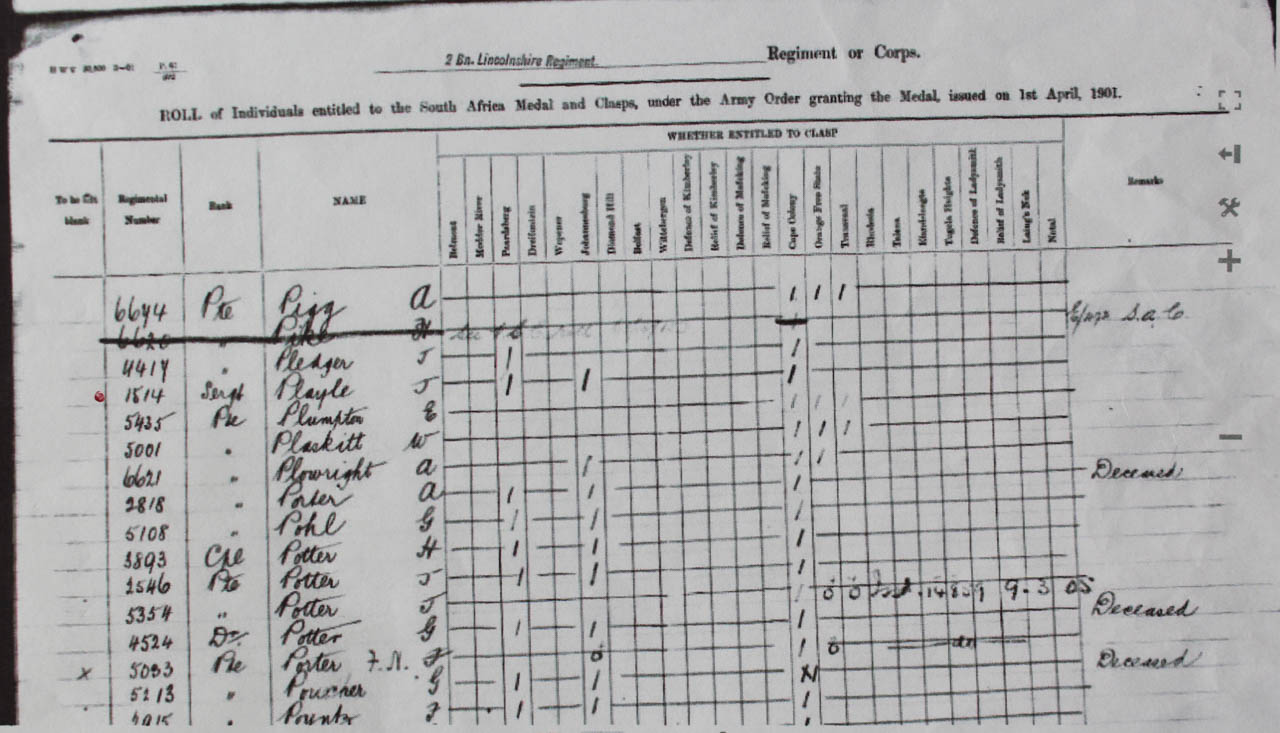 2 Bn. Lincolnshire Regiment. Regiment or Corps.
ROLL of Individuals entitled to the South Africa Medal and Clasps, under the Army Order granting the Medal, issued on 1st April, 1901.
WHETHER ENTITLED TO CLASP
To be left blank Regimental Number Rank NAME Belmont Modder River Paardeberg Dreifontein Wepener Johannesburg Diamond Hill Belfast Wittebergen Defence of Kimberley Relief of Kimberley Defence of Mafeking Relief of Mafeking Cape Colony Orange Free State Transvaal Rhodesia Talana Elandslaagte Tugela Heights Defence of Ladysmith Relief of Ladysmith Laing's Nek Natal Remarks
6644 Pte Pigg A
Pike H
4417 " Pledger J
1514 Sergt Playle J
5435 Pte Plumpton E
5001 " Plaskitt W
6621 " Plowright A Deceased
2818 " Porter A
5108 " Pohl G
3893 Cpl Potter H
2546 Pte Potter J
5354 " Potter J 9. 3 05 Deceased
4524 Dr. Potter G
x 5083 Pte Porter F.N. Deceased
5213 " Poucher G
Pountx J